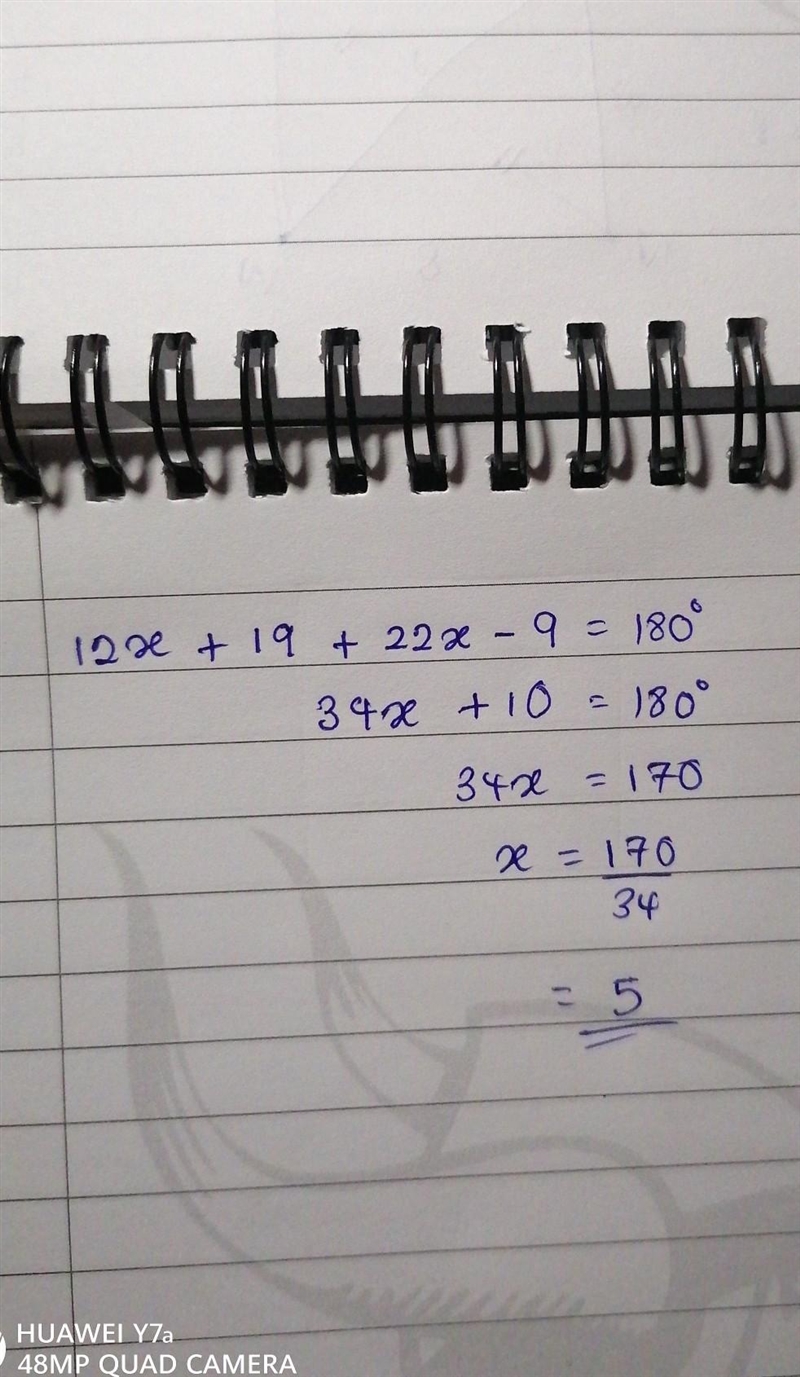 12x + 19 + 22x - 9 = 180°
34x + 10 = 180°
34x = 170
x = 170
34
= 5
HUAWEI Y7a
48MP QUAD CAMERA